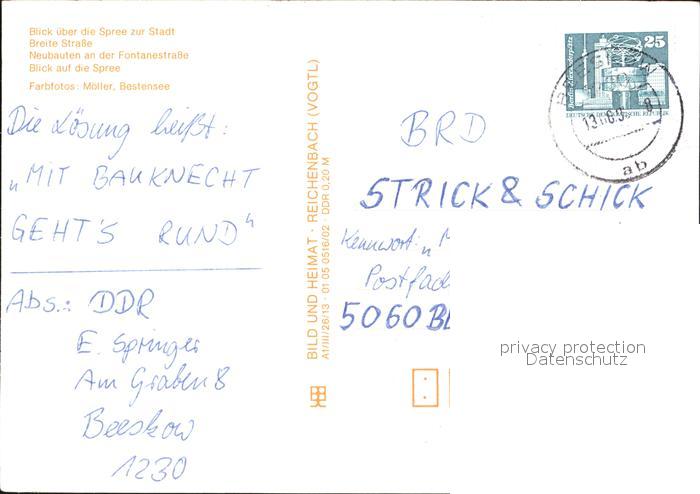 Blick über die Spree zur Stadt
Breite Straße
Neubauten an der Fontanestraße
Blick auf die Spree
Farbfotos: Möller, Bestensee
Die Lösung heißt:
„MIT BAUKNECHT
GEHT'S RUND“
Abs.: DDR
E. Springer
Am Graben 8
Beeskow
1230
BILD UND HEIMAT · REICHENBACH (VOGTL)
A1/III/26/13 · 01 05 0516/02 · DDR 0,20 M
25
Berlin, Alexanderplatz
DEUTSCHE DEMOKRATISCHE REPUBLIK
ab
BRD
STRICK & SCHICK
Kennwort: „M
Postfach
5060 B
privacy protection
Datenschutz